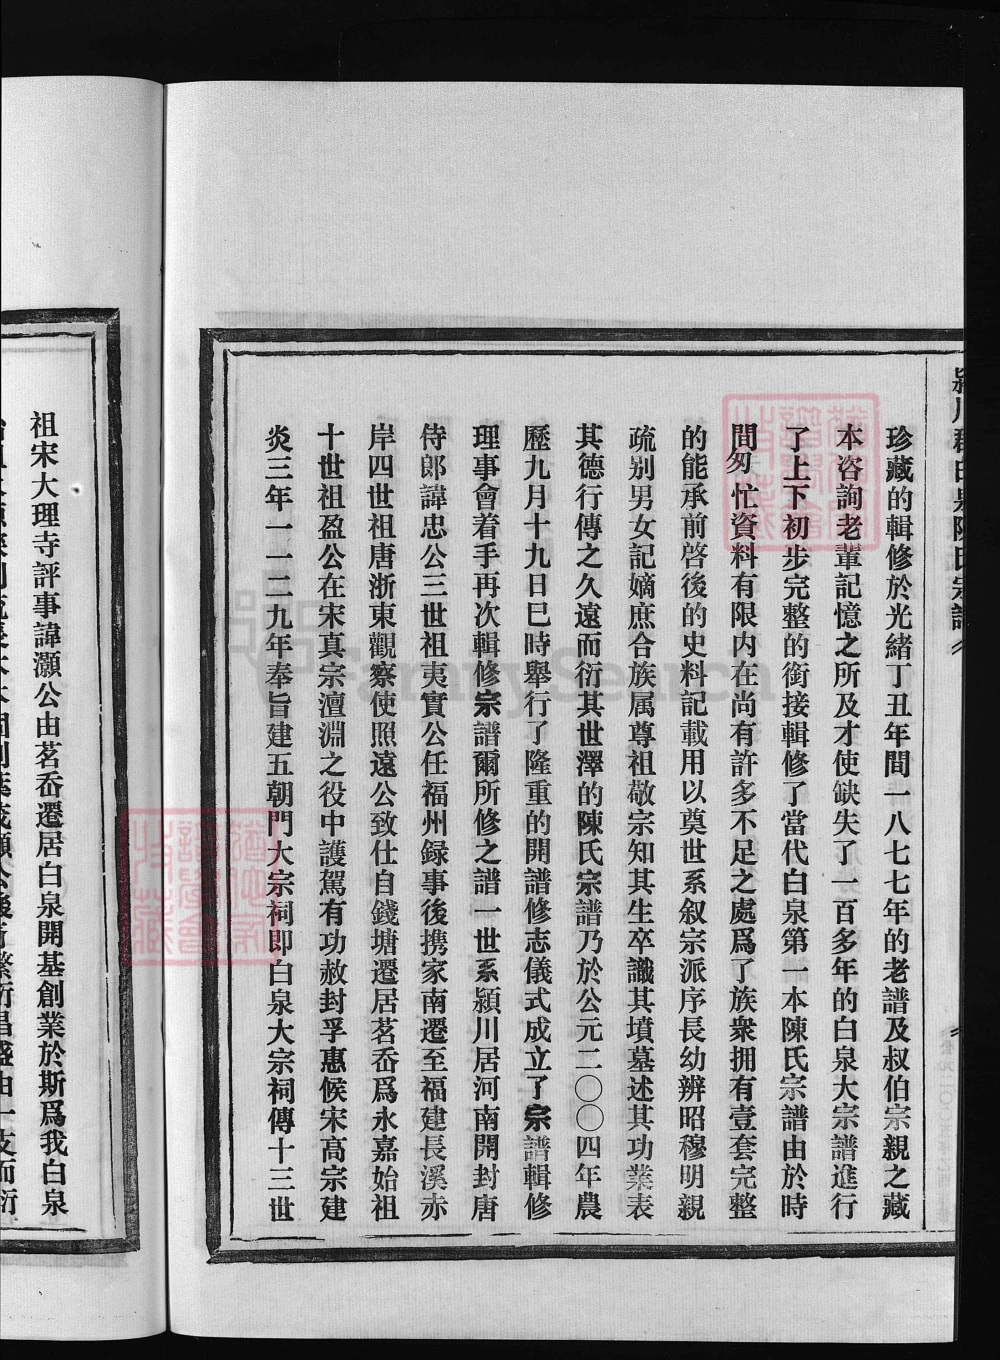 珍藏的輯修於光緒丁丑年間一八七七年的老譜及叔伯宗親之藏
本咨詢老輩記憶之所及才使缺失了一百多年的白泉大宗譜進行
了上下初步完整的銜接輯修了當代白泉第一本陳氏宗譜由於時
間匆忙資料有限内在尚有許多不足之處爲了族衆拥有壹套完整
的能承前啓後的史料記載用以奠世系叙宗派序長幼辨昭穆明親
疏别男女記嫡庶合族属尊祖敬宗知其生卒識其墳墓述其功業表
其德行傳之久遠而衍其世澤的陳氏宗譜乃於公元二〇〇四年農
歷九月十九日巳時舉行了隆重的開譜修志儀式成立了宗譜輯修
理事會着手再次輯修宗譜爾所修之譜一世系潁川居河南開封唐
侍郎諱忠公三世祖夷實公任福州録事後携家南遷至福建長溪赤
岸四世祖唐浙東觀察使照遠公致仕自錢塘遷居茗岙爲永嘉始祖
十世祖盈公在宋真宗澶淵之役中護駕有功赦封孚惠候宋高宗建
炎三年一一二九年奉旨建五朝門大宗祠即白泉大宗祠傳十三世
祖宋大理寺評事諱灝公由茗岙遷居白泉開基創業於斯爲我白泉
FamilySearch